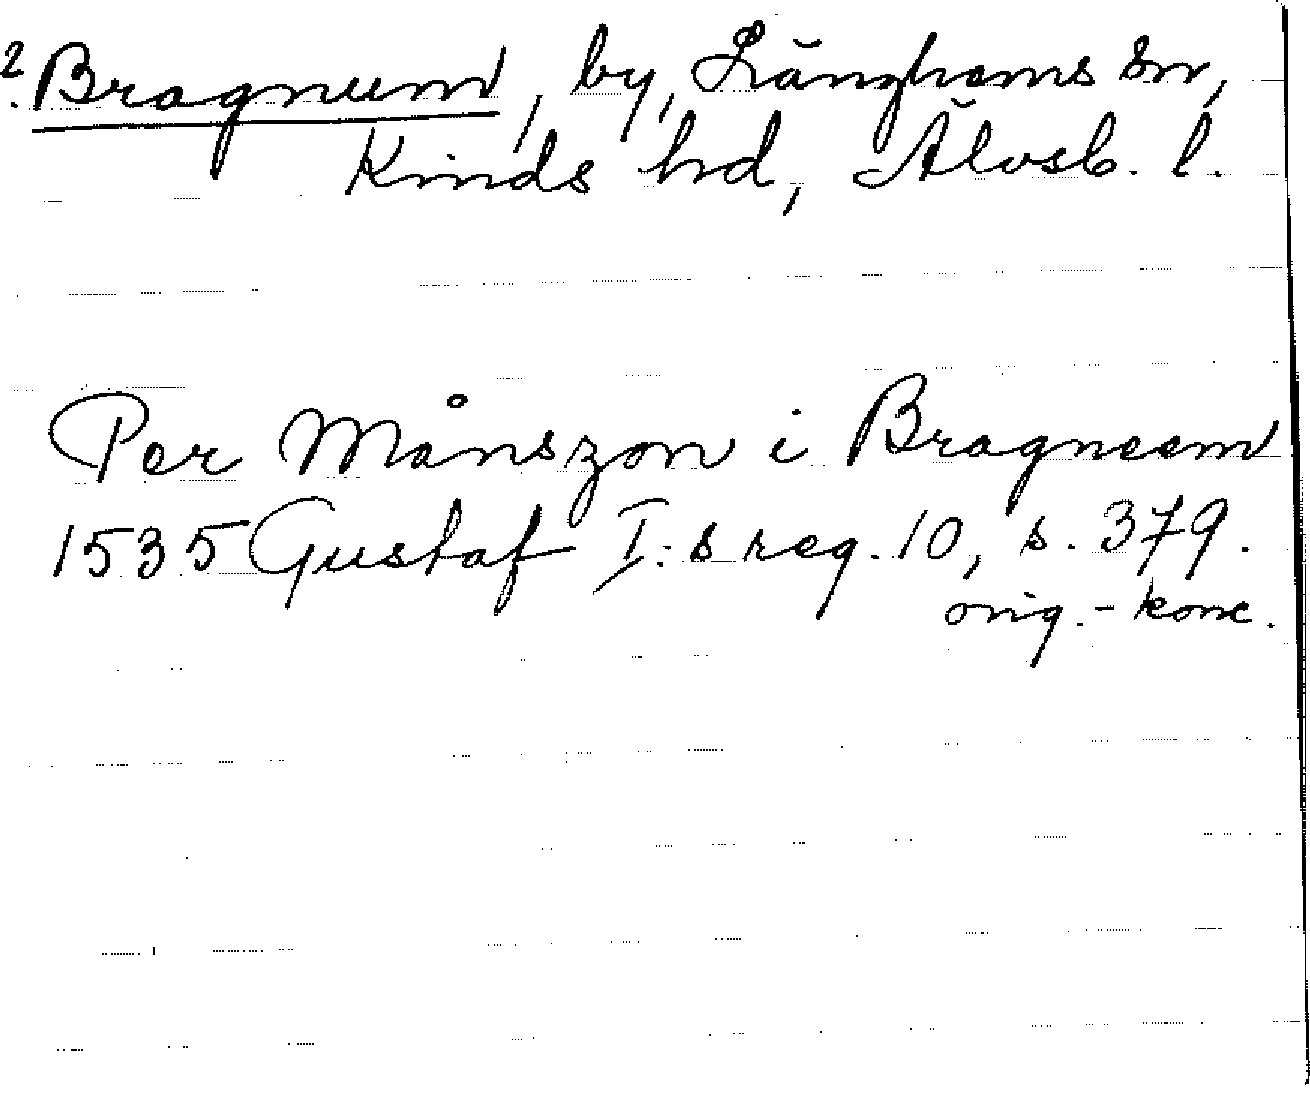 ? Bragnum, by, Länghems sn,
Kinds hd, Älvsb. l.
Per Månszon i Bragneem
1535 Gustaf I:s reg. 10, s. 379.
orig.-konc.